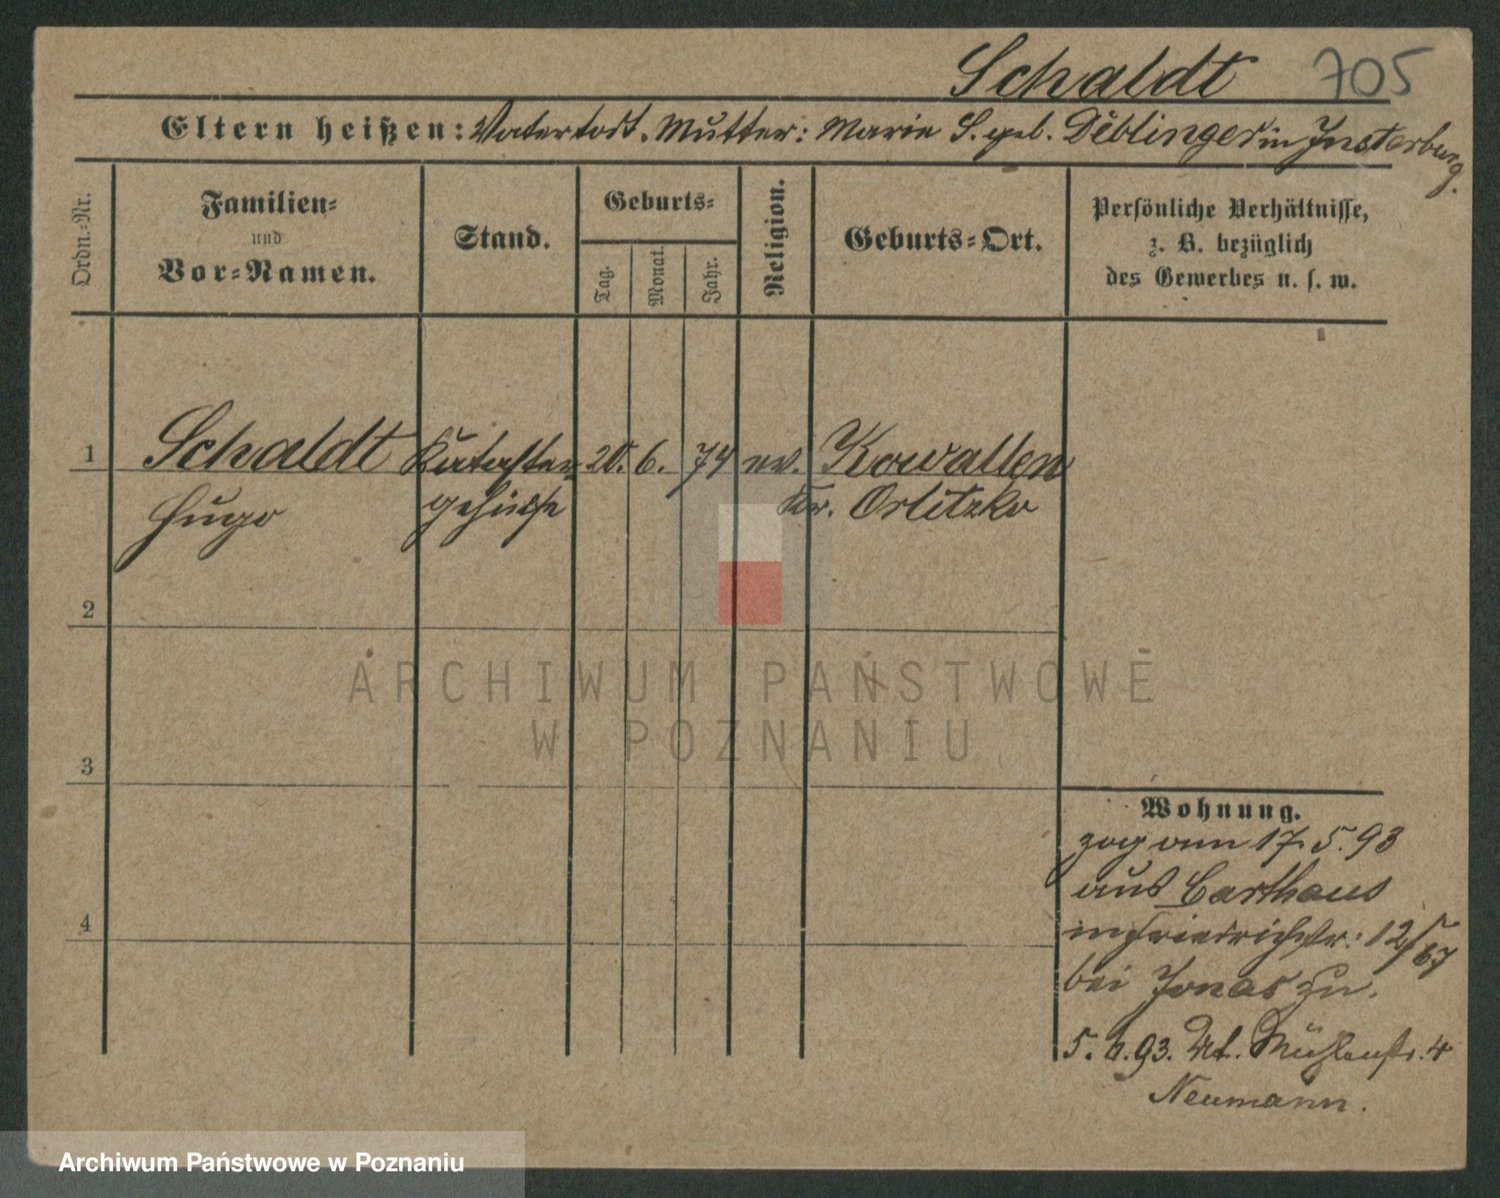 Schaldt 705
Eltern heißen: Vater todt. Mutter: Marie S. geb. Deblinger in Insterburg.
Ordn.-Nr.
Familien-
und
Vor-Namen.
Stand.
Geburts-
Tag.
Monat.
Jahr.
Religion.
Geburts-Ort.
Persönliche Verhältnisse,
z. B. bezüglich
des Gewerbes u. s. w.
1 Schaldt Kataster 20. 6. 74 ev. Kowallen
Hugo gehülfe Kr. Orlitzko
2
3
4
Wohnung.
zog am 17. 5. 93
aus Carthaus
in Friedrichstr: 12
bei Jonas zu.
5. 6. 93. Mühlenstr. 4
Neumann.
ARCHIWUM PAŃSTWOWE
W POZNANIU
Archiwum Państwowe w Poznaniu